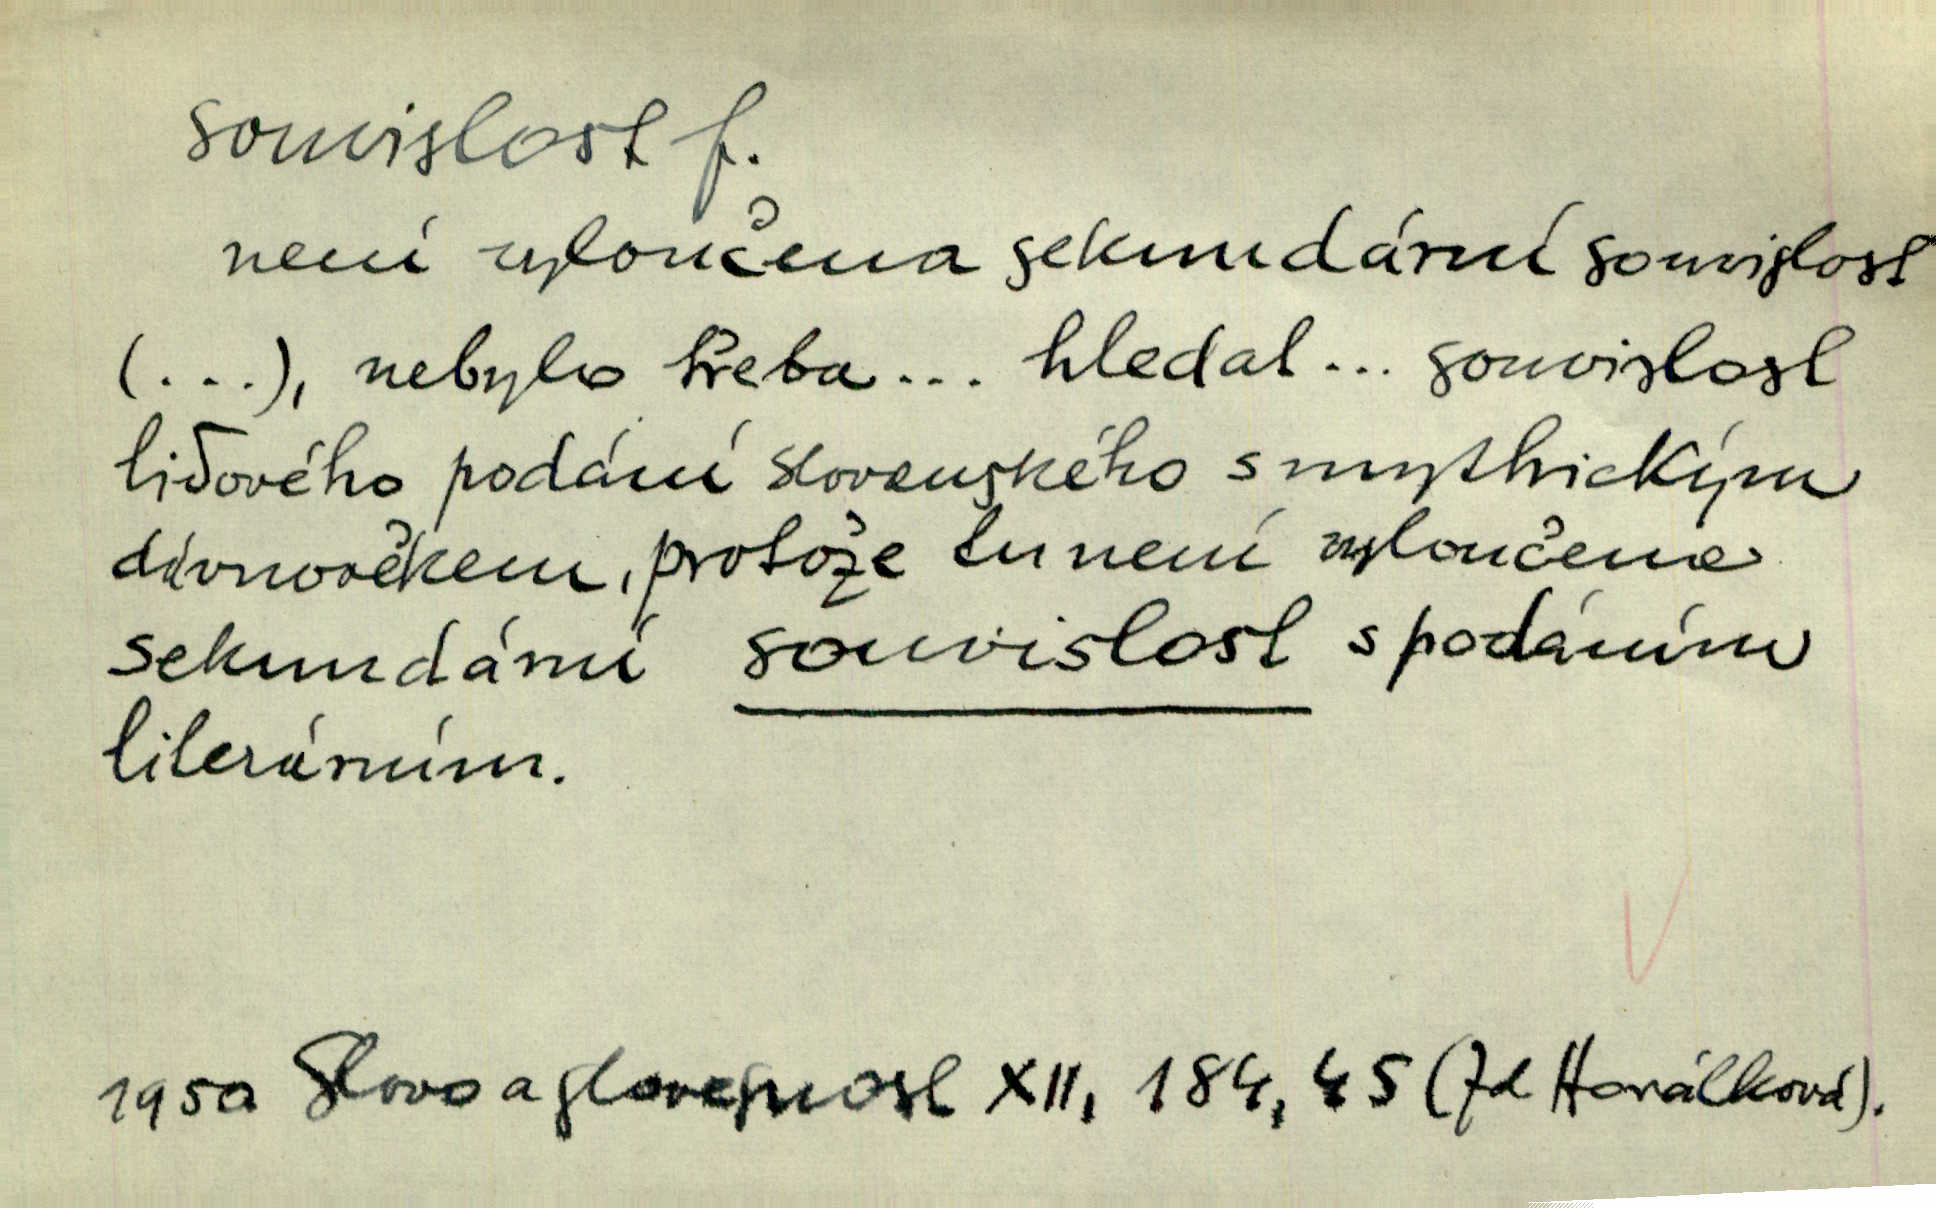 souvislost f.
není vyloučena sekundární souvislost
(...), nebylo třeba... hledat... souvislost
lidového podání slovenského s mythickým
dávnověkem, protože tu není vyloučena
sekundární souvislost s podáním
literárním.
1950 Slovo a slovesnost XII, 184, 45 (Zd Haválková).